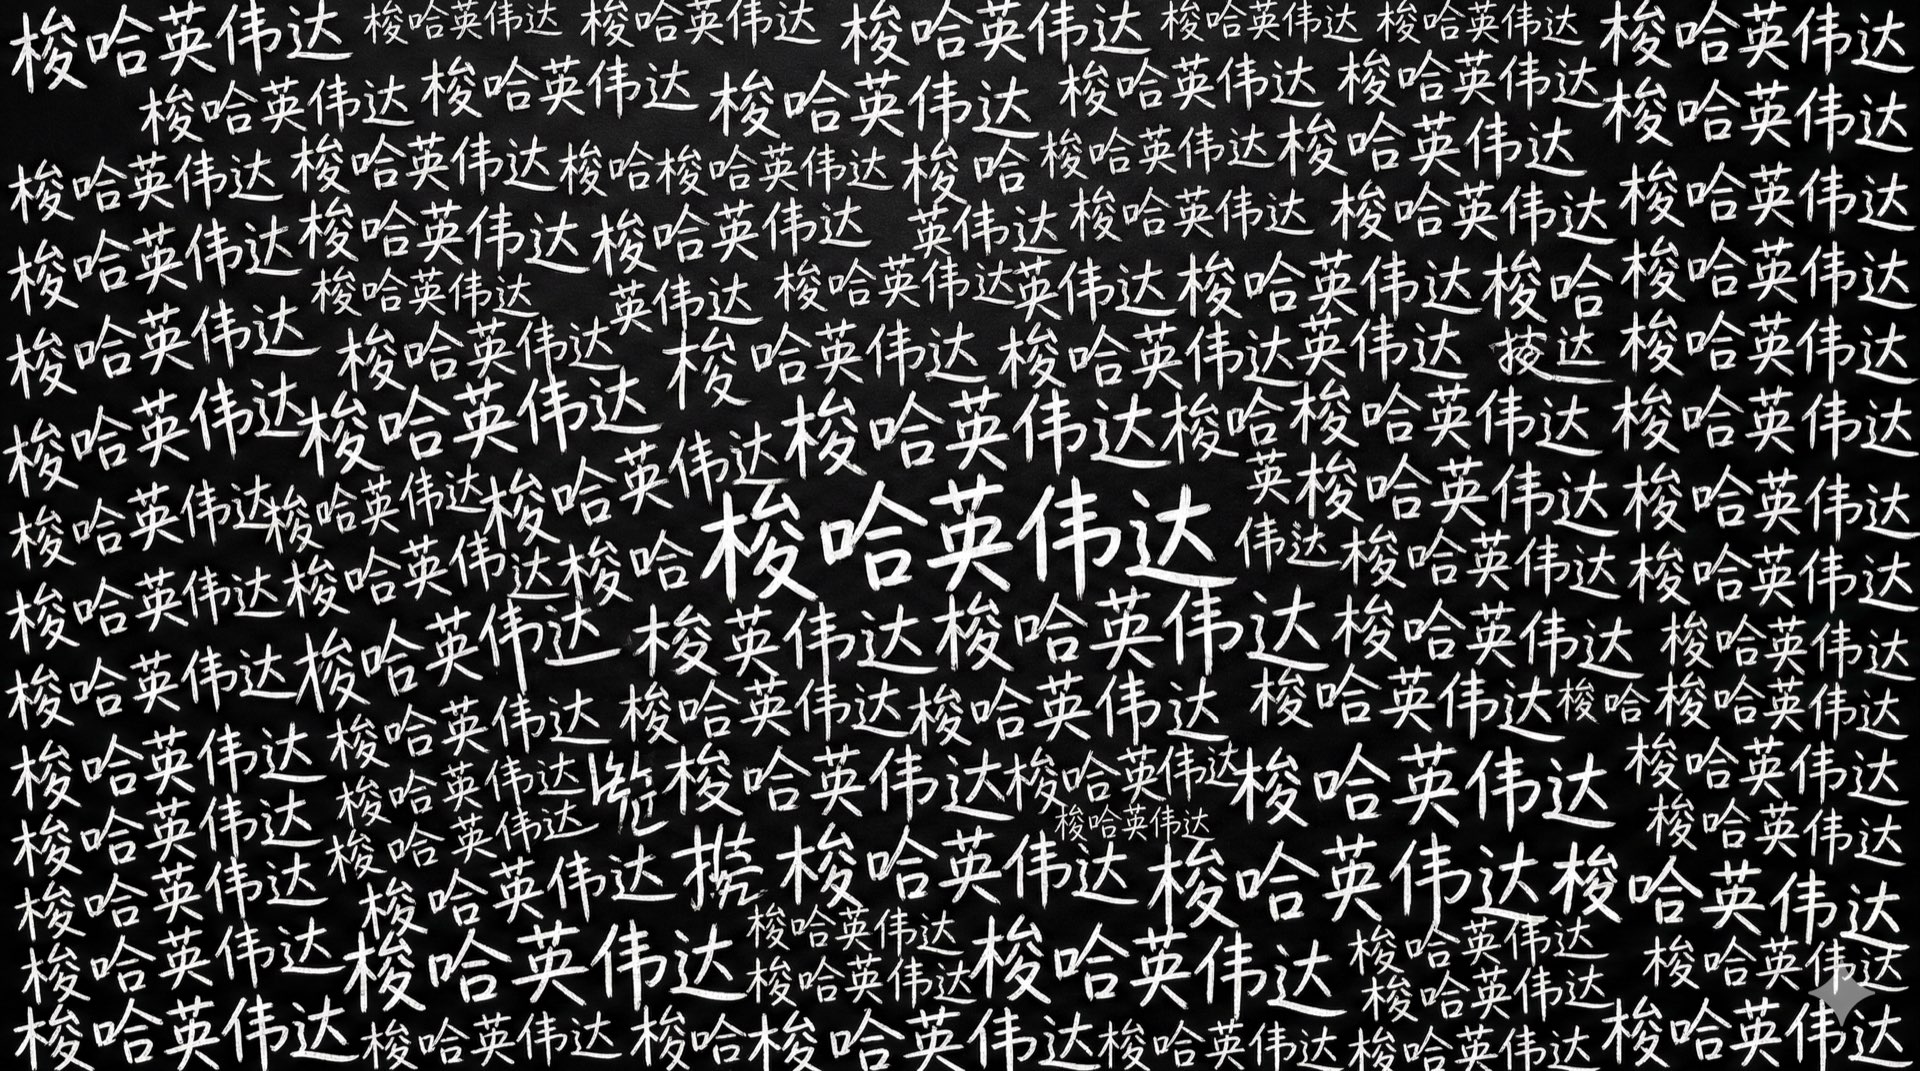 梭哈英伟达 梭哈英伟达 梭哈英伟达 梭哈英伟达 梭哈英伟达 梭哈英伟达 梭哈英伟达
梭哈英伟达 梭哈英伟达 梭哈英伟达 梭哈英伟达 梭哈英伟达 梭哈英伟达
梭哈英伟达 梭哈英伟达 梭哈 梭哈英伟达 梭哈 梭哈英伟达 梭哈英伟达 梭哈英伟达
梭哈英伟达 梭哈英伟达 梭哈英伟达 英伟达 梭哈英伟达 梭哈英伟达 梭哈英伟达
梭哈英伟达 英伟达 梭哈英伟达 英伟达 梭哈英伟达 梭哈
梭哈英伟达 梭哈英伟达 梭哈英伟达 梭哈英伟达 英伟达 达 梭哈英伟达
梭哈英伟达 梭哈英伟达 梭哈英伟达 梭哈 梭哈英伟达 梭哈英伟达
梭哈英伟达 梭哈英伟达 梭哈英伟达 英 梭哈英伟达 梭哈英伟达
梭哈英伟达 伟达
梭哈英伟达 梭哈英伟达 梭哈 梭哈英伟达 梭哈英伟达
梭哈英伟达 梭英伟达 梭哈英伟达 梭哈英伟达 梭哈英伟达
梭哈英伟达 梭哈英伟达 梭哈英伟达 梭哈英伟达 梭哈英伟达 梭哈 梭哈英伟达
梭哈英伟达 梭哈英伟达 梭哈英伟达 梭哈英伟达 梭哈英伟达 梭哈英伟达
梭哈英伟达 梭哈英伟达 梭哈英伟达 梭哈英伟达
梭哈英伟达 梭哈英伟达 梭哈英伟达 梭哈英伟达 梭哈英伟达
梭哈英伟达 梭哈英伟达 梭哈英伟达 梭哈英伟达 梭哈英伟达 梭哈英伟达
梭哈英伟达 梭哈英伟达
梭哈英伟达 梭哈英伟达 梭哈 梭哈英伟达 梭哈英伟达 梭哈英伟达 梭哈英伟达